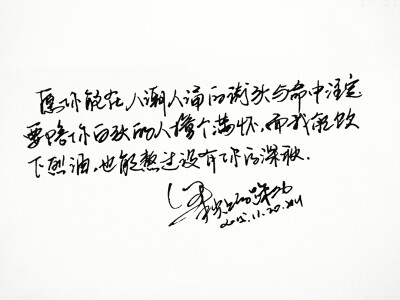 愿你能在人潮人涌的街头与命中注定
要陪你白头的人撞个满怀,而我能饮
下烈酒,也能熬过没有你的深秋.